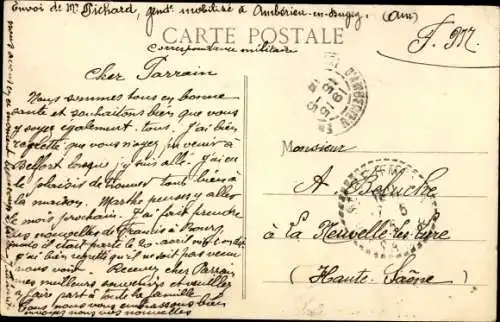 Envoi de Mr Pichard, gend. mobilisé à Ambérieu-en-Bugey (Ain)
CARTE POSTALE
Correspondance militaire
F. M
Cher Parrain
Nous sommes tous en bonne
santé et souhaitons bien que vous
y soyez également tous. J'ai bien
regretté que vous n'ayez pu venir à
Belfort lorsque j'y suis allé. J'ai eu
le plaisir de trouver tous bien à
la maison. Marthe pense y aller
le mois prochain. J'ai fait prendre
des nouvelles de à Bourg
il était parti le 20 avril
j'ai bien regretté qu'il ne soit pas venu
nous voir. Recevez cher Parrain
mes meilleurs souvenirs et veuillez
faire part à toute la famille
Nous vous embrassons bien
envoyez nous vos nouvelles
Monsieur
A Beluche
à la Neuvelle-les-Lure
(Haute-Saône)